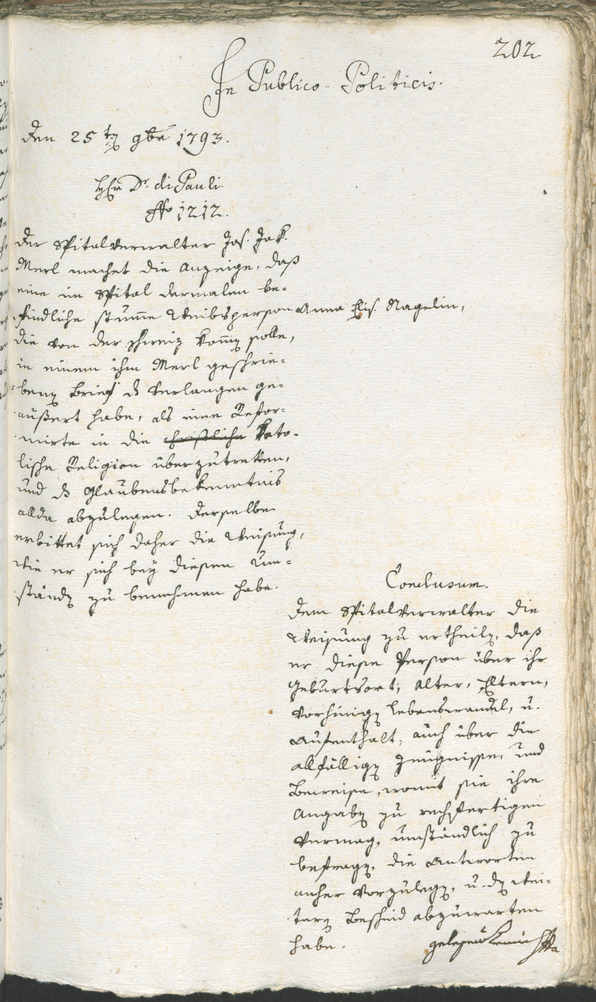 202
In Publico-Politicis.
Den 25ten 9br 1793.
Hr Dr. di Pauli
No 1212.
Der Spitalverwalter Jos. Jak.
Merl machet die Anzeige, daß
eine im Spital dermalen be-
findliche stumme Weibsperson Anna Elis. Nagelin,
die von der Schweiz komen solle,
in einem ihm Merl geschrie-
benen Brief ds Verlangen ge-
äußert habe, als eine Refor-
mirte in die christliche Kato-
lische Religion überzutretten,
und ds Glaubensbekenntnis
allda abzulegen. Derselbe
erbittet sich daher die Weisung,
wie er sich bey diesen Um-
ständen zu benehmen habe.
Conclusum.
Dem Spitalverwalter die
Weisung zu ertheilen, daß
er diese Person über ihr
Geburtsort, Alter, Eltern,
vorhinigen Lebenswandel, u.
Aufenthalt, auch über die
allfälligen Zeugnisse, und
Beweise, womit sie ihre
Angaben zu rechtfertigen
vermag, umständlich zu
befragen, die Antworten
anher vorzulegen, u. den wei-
tern Bescheid abzuwarten
habe.